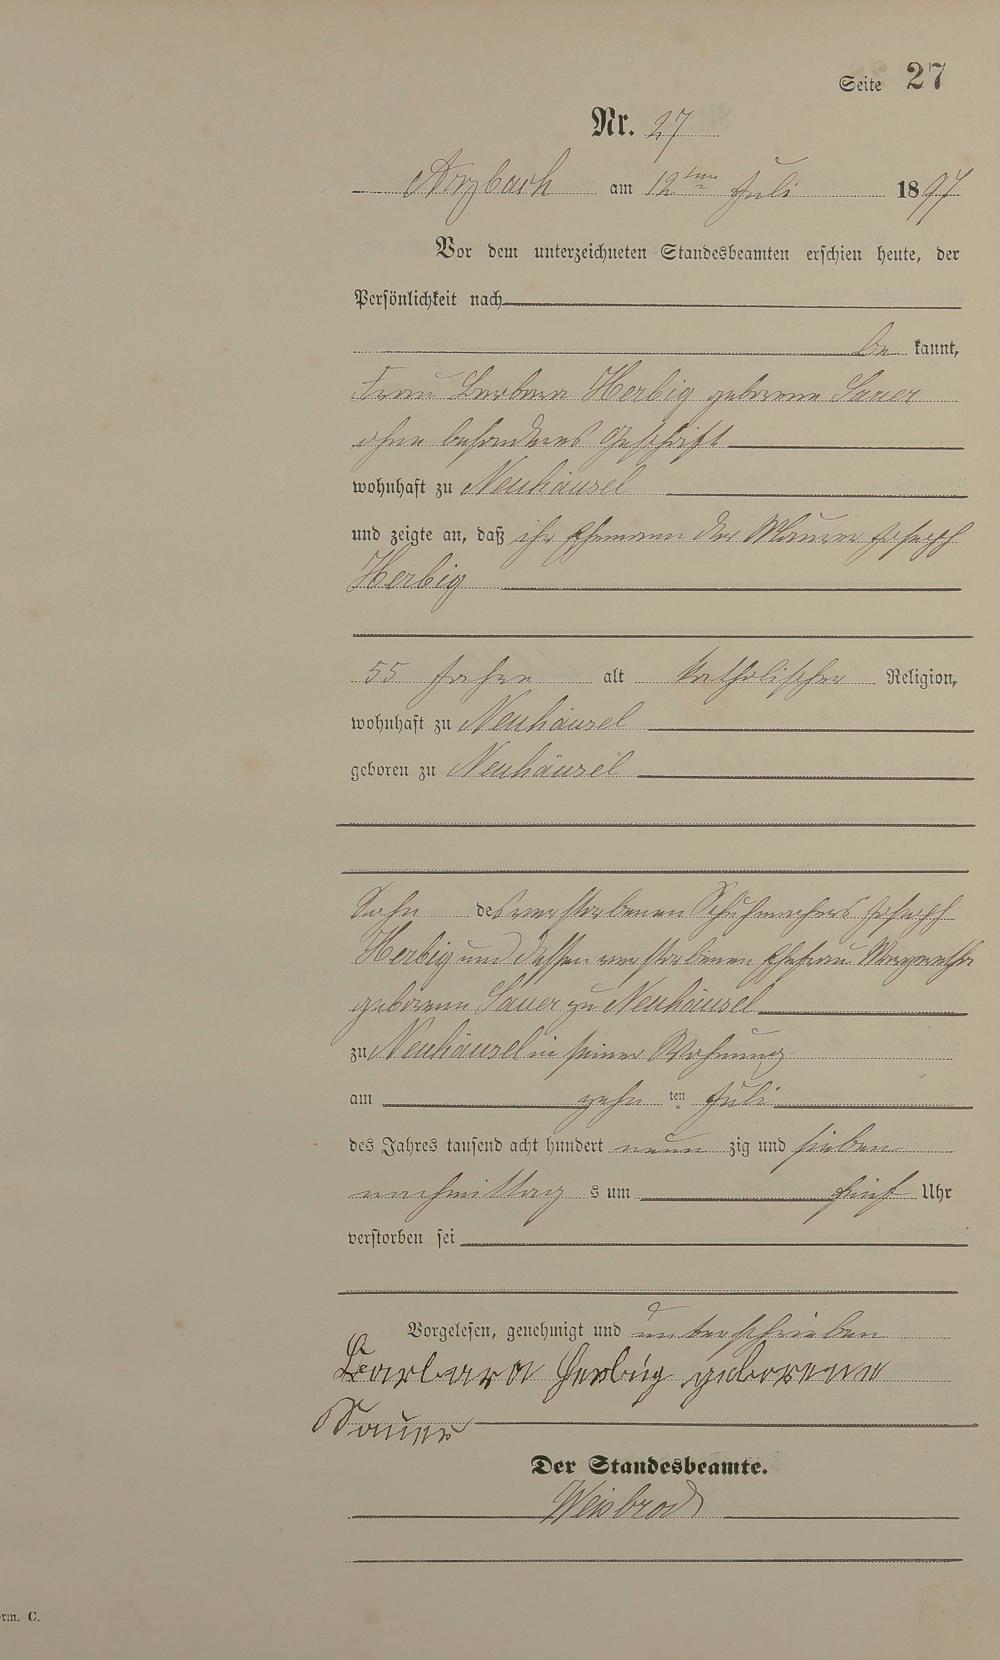 Seite 27
Nr. 27
Arzbach am 12ten Juli 1897
Vor dem unterzeichneten Standesbeamten erschien heute, der
Persönlichkeit nach
be kannt,
Frau Barbara Herbig geborene Sauer
ohne besonderes Geschäft
wohnhaft zu Neuhäusel
und zeigte an, daß ihr Ehemann der Maurer Joseph
Herbig
55 Jahre alt katholischer Religion,
wohnhaft zu Neuhäusel
geboren zu Neuhäusel
Sohn des verstorbenen Schuhmachers Joseph
Herbig und dessen verstorbenen Ehefrau Margaretha
geborene Sauer zu Neuhäusel
zu Neuhäusel in seiner Wohnung
am zehn ten Juli
des Jahres tausend acht hundert neun zig und sieben
nachmittag s um fünf Uhr
verstorben sei
Vorgelesen, genehmigt und unterschrieben
Barbara Herbig geborene
Sauer
Der Standesbeamte.
Weisbrod
rm. C.